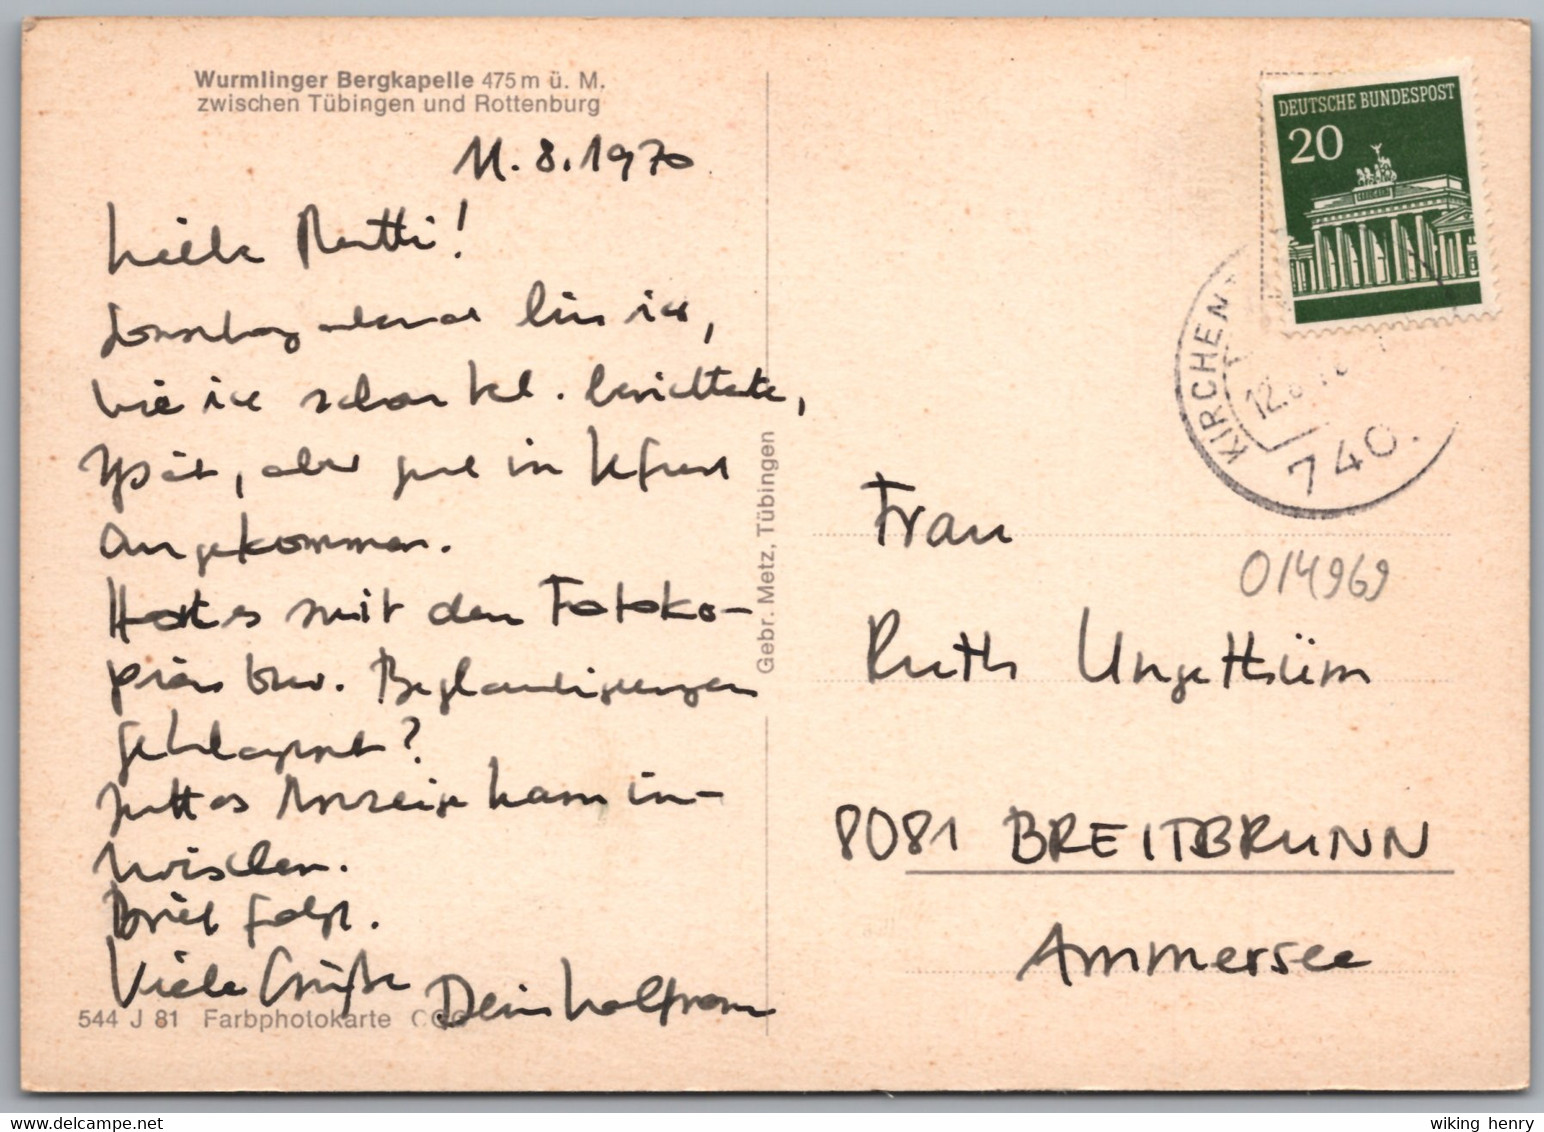 Wurmlinger Bergkapelle 475 m ü. M.
zwischen Tübingen und Rottenburg
11.8.1970
Liebe Mutti!
Sonntag abend bin ich,
wie ich schon tel. berichtete,
spät, aber gut in Kfurt
angekommen.
Hat es mit den Fotoko-
pien bzw. Beglaubigungen
geklappt?
Juttas Anzeige kam in-
zwischen.
Brief folgt.
Viele Grüße
Dein Wolfram
544 J 81 Farbphotokarte
Gebr. Metz, Tübingen
DEUTSCHE BUNDESPOST
20
KIRCHEN
12.8.70
740
014969
Frau
Ruth Ungethüm
8081 BREITBRUNN
Ammersee
wiking henry